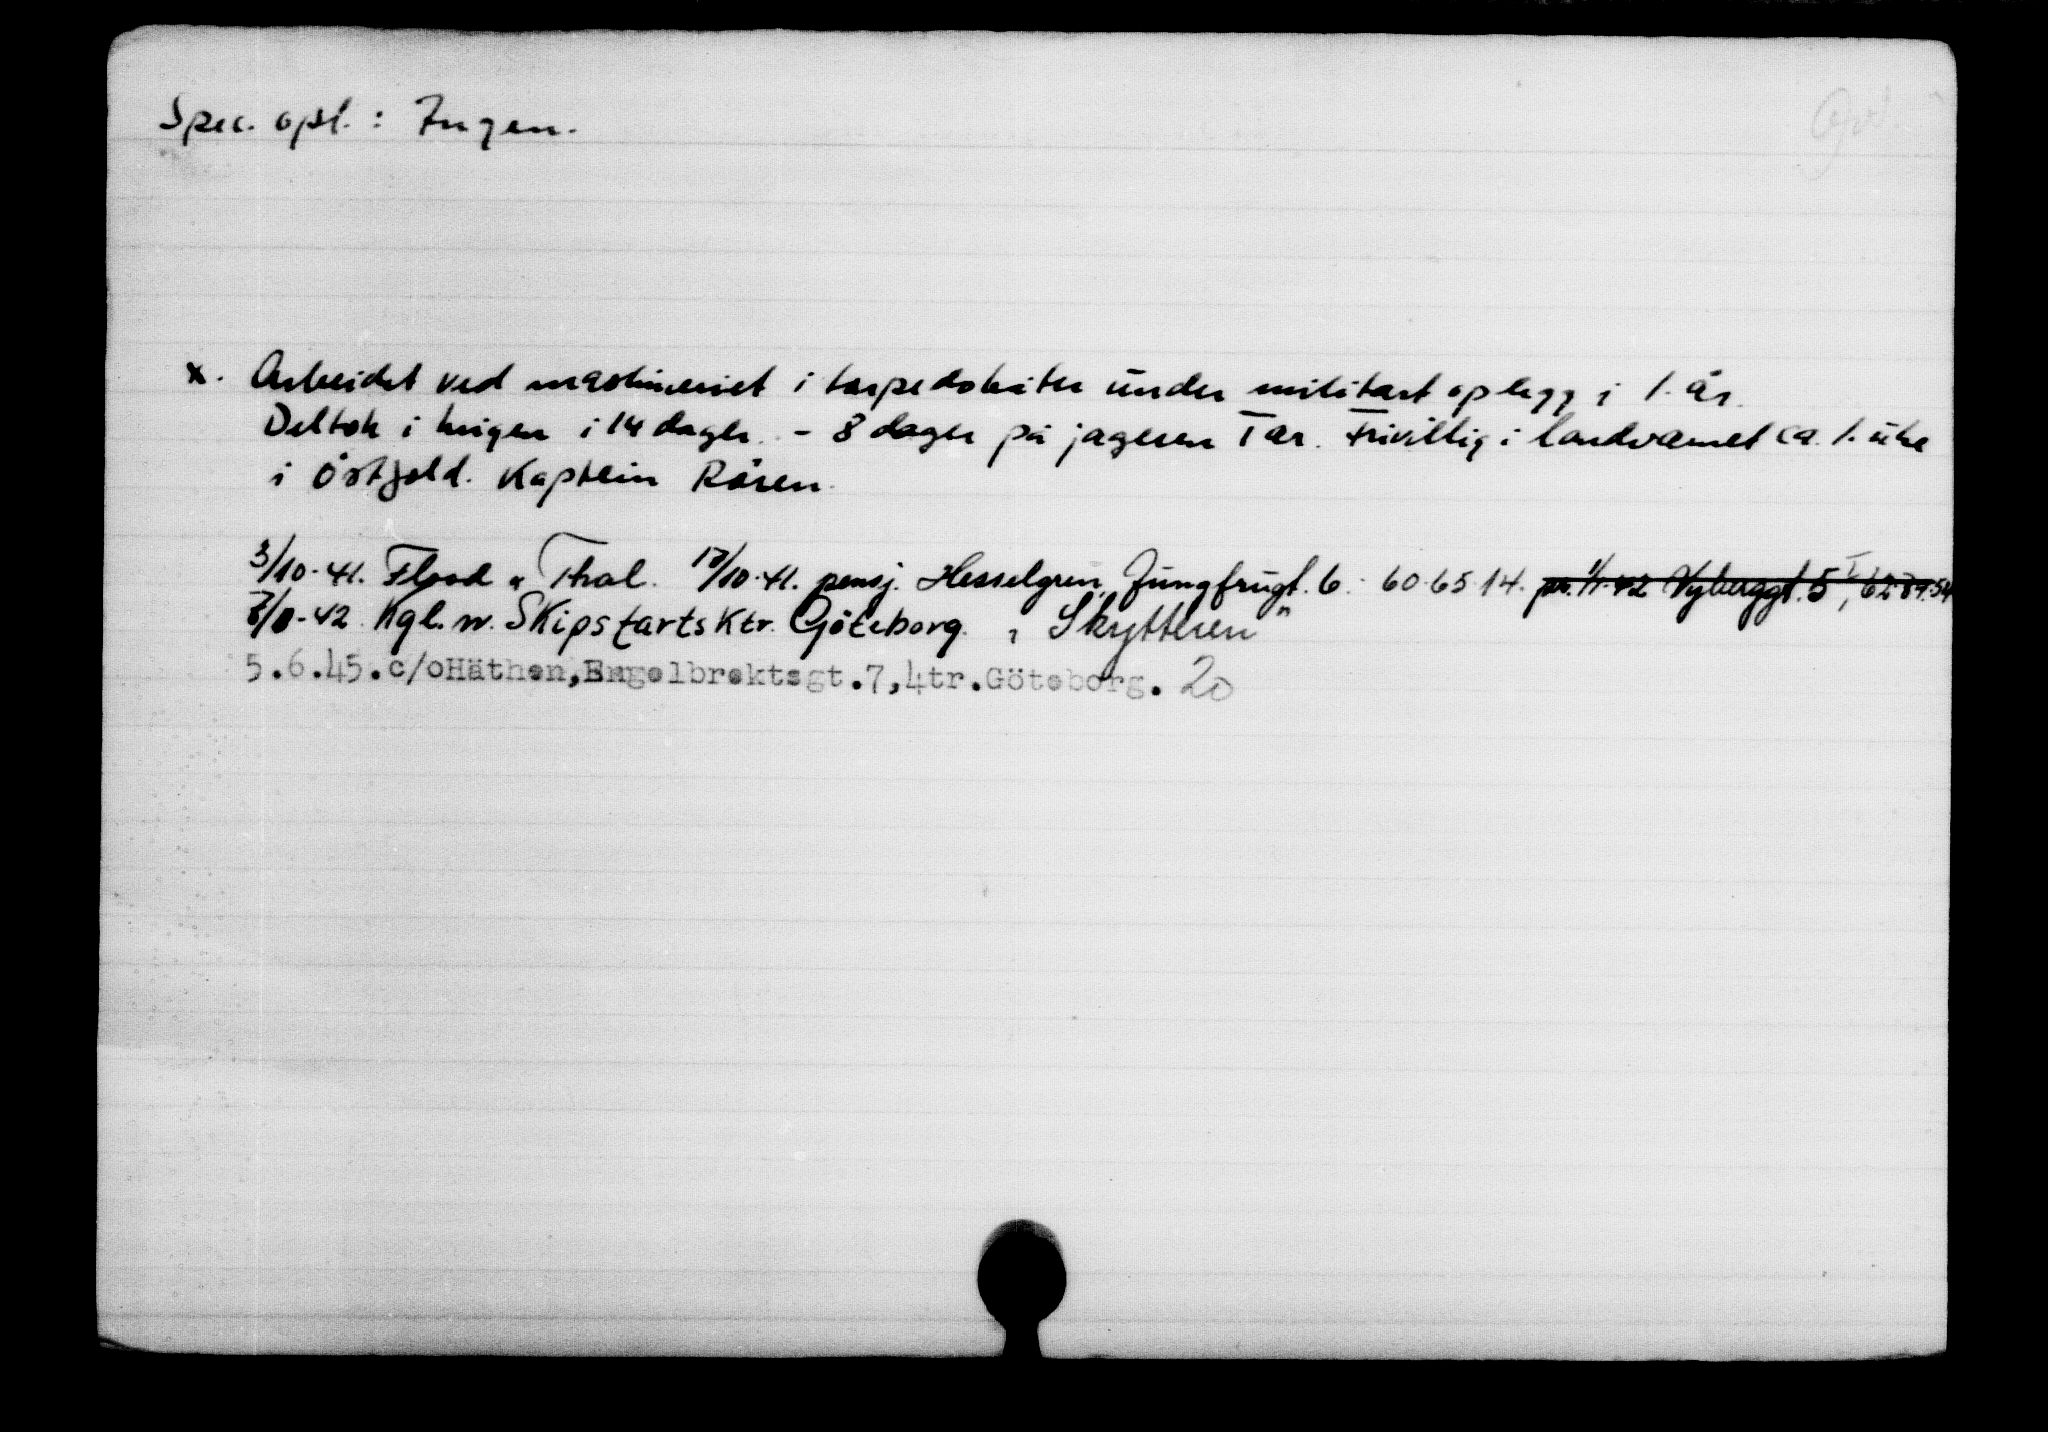 Spec. opl. : Ingen.
x. Arbeidet ved maskineriet i torpedobåter under militært oplegg i 1. år.
Deltok i krigen i 14 dager. - 8 dager på jageren Tar. Frivillig i landvernet ca. 1. uke
i Östfold. Kaptein Råsen.
3/10-41. Flood u. Thal. 17/10-41. pensj. Hesselgren, Jungfrugt. 6. 60.65.14. pr. 1/1-42 Vyborggt. 5 I, 62.84.54
7/8-42 Kgl. n. Skipsfartsktr. Göteborg. „Skytteren"
5.6.45.c/oHäthen,Engelbrektsgt.7,4tr.Göteborg. 20